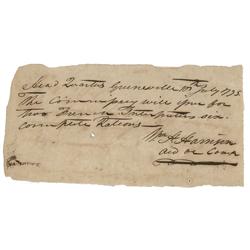 Head Quarters Greeneville 10th July 1795
The Commissary will issue for
two French Interpreters six
complete Rations
Wm H Harrison
aid de Camp